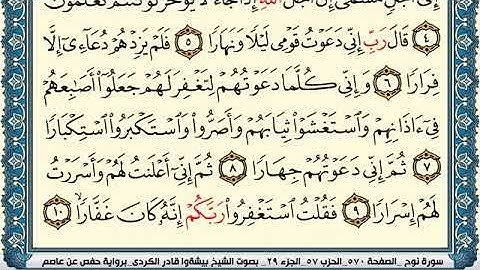 إِلَىٰٓ أَجَلٍ مُّسَمًّى إِنَّ أَجَلَ ٱللَّهِ إِذَا جَآءَ لَا يُؤَخَّرُ لَوْ كُنتُمْ تَعْلَمُونَ
٤ قَالَ رَبِّ إِنِّي دَعَوْتُ قَوْمِي لَيْلًا وَنَهَارًا ٥ فَلَمْ يَزِدْهُمْ دُعَآءِيٓ إِلَّا
فِرَارًا ٦ وَإِنِّي كُلَّمَا دَعَوْتُهُمْ لِتَغْفِرَ لَهُمْ جَعَلُوٓا۟ أَصَٰبِعَهُمْ
فِيٓ ءَاذَانِهِمْ وَٱسْتَغْشَوْا۟ ثِيَابَهُمْ وَأَصَرُّوا۟ وَٱسْتَكْبَرُوا۟ ٱسْتِكْبَارًا
٧ ثُمَّ إِنِّي دَعَوْتُهُمْ جِهَارًا ٨ ثُمَّ إِنِّيٓ أَعْلَنتُ لَهُمْ وَأَسْرَرْتُ
لَهُمْ إِسْرَارًا ٩ فَقُلْتُ ٱسْتَغْفِرُوا۟ رَبَّكُمْ إِنَّهُۥ كَانَ غَفَّارًا ١٠
سورة نوح _الصفحة ٥٧٠_ الحزب ٥٧_ الجزء ٢٩_ بصوت الشيخ بيشةوا قادر الكردى_ برواية حفص عن عاصم